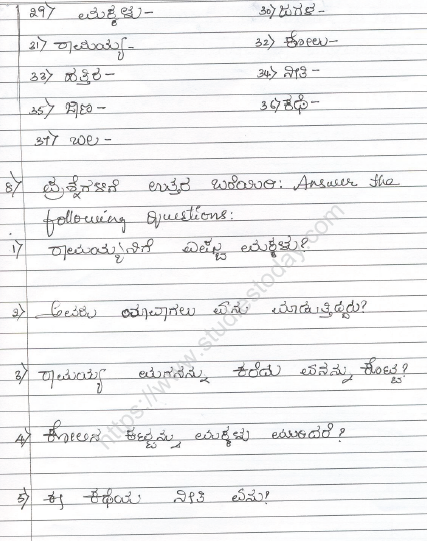 29) ಮಕ್ಕಳು - 30) ಜಗಳ -
31) ರಾಮಯ್ಯ - 32) ಕೋಲು -
33) ಹತ್ತಿರ - 34) ನೀತಿ -
35) 36) ಕಥೆ -
37) ಬಲ -
8) ಪ್ರಶ್ನೆಗಳಿಗೆ ಉತ್ತರ ಬರೆಯಿರಿ: Answer the
following Questions:
1) ರಾಮಯ್ಯನಿಗೆ ಎಷ್ಟು ಮಕ್ಕಳು?
2) ಅವರು ಯಾವಾಗಲು ಏನು ಮಾಡುತ್ತಿದ್ದರು?
3) ರಾಮಯ್ಯ ಮಗನನ್ನು ಕರೆದು ಏನನ್ನು ಕೊಟ್ಟ?
4) ಕೋಲಿನ ಕಟ್ಟನ್ನು ಮಕ್ಕಳು ಮುರಿದರೆ?
5) ಈ ಕಥೆಯ ನೀತಿ ಏನು?
https://www.studiestoday.com